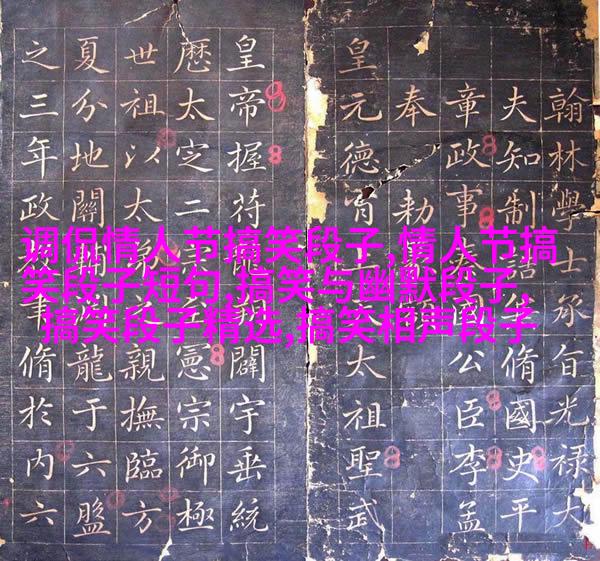 翰林學士承旨光祿大
夫知制脩國史平
章政事國公臣李孟
奉勅
皇元德胄太祖聖武
皇帝握符闢宇垂統
厯太定二憲宗御極
世祖以太親撫臨方
夏分地關龍于六盤
之三年政事脩於内六
调侃情人节搞笑段子,情人节搞
笑段子短句,搞笑与幽默段子,
搞笑段子精选,搞笑相声段子